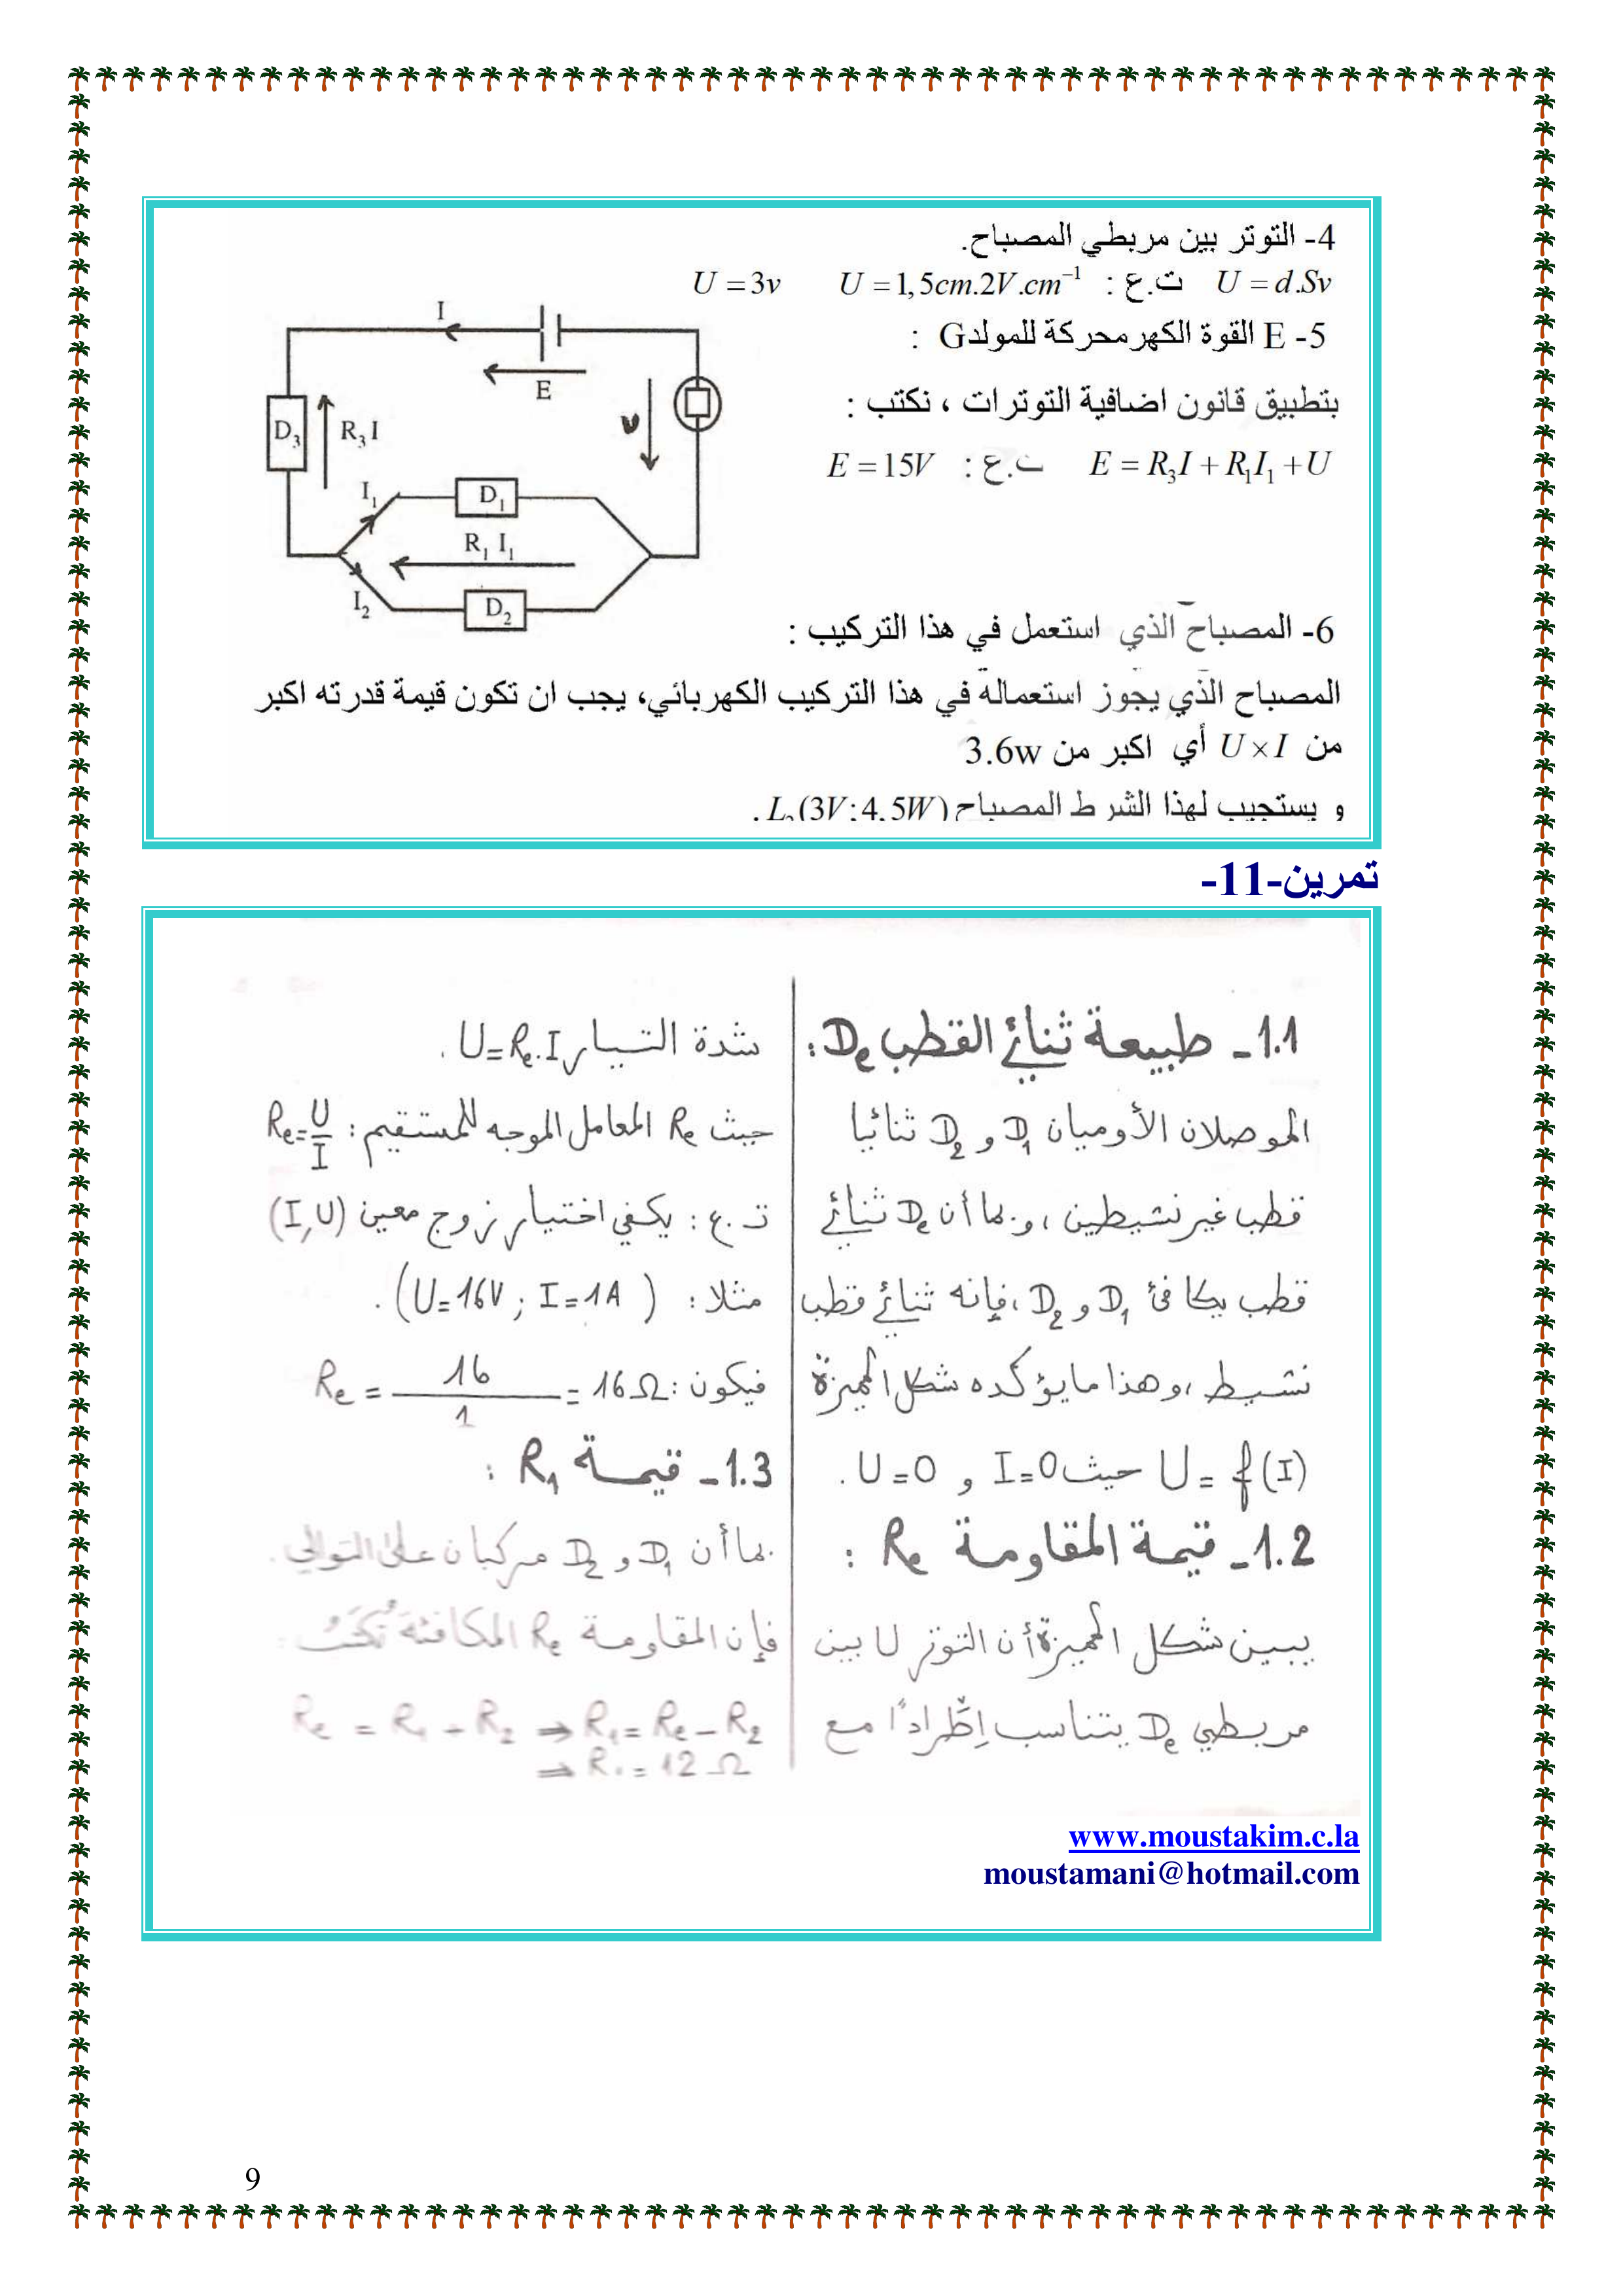 4- التوتر بين مربطي المصباح.
U = d.Sv ت.ع : U = 1,5cm.2V.cm⁻¹ U = 3v
5- E القوة الكهرمحركة للمولد G :
بتطبيق قانون اضافية التوترات ، نكتب :
E = R₃I + R₁I₁ + U ت.ع : E = 15V
I
E
U
D₃
R₃ I
I₁
D₁
R₁ I₁
I₂
D₂
6- المصباح الذي استعمل في هذا التركيب :
المصباح الذي يجوز استعماله في هذا التركيب الكهربائي، يجب ان تكون قيمة قدرته اكبر
من U×I أي اكبر من 3.6w
و يستجيب لهذا الشرط المصباح L₂(3V;4,5W).
تمرين-11-
1.1 - طبيعة ثنائي القطب De :
الموصلان الأوميان D₁ و D₂ ثنائيا
قطب غير نشيطين ، و بما أن De ثنائي
قطب يكافئ D₁ و D₂ ، فإنه ثنائي قطب
نشيط ، وهذا ما يؤكده شكل المميزة
U = f(I) حيث I=0 و U=0 .
1.2 - قيمة المقاومة Re :
يبين شكل المميزة أن التوتر U بين
مربطي De يتناسب إطّراداً مع
شدة التيار U=Re.I .
حيث Re المعامل الموجه للمستقيم : Re=U/I
ت.ع : يكفي اختيار زوج معين (I,U)
مثلا : (U=16V ; I=1A) .
فيكون : Re = 16/1 = 16Ω
1.3 - قيمة R₁ :
بما أن D₁ و D₂ مركبان على التوالي .
فإن المقاومة Re المكافئة تُكتب :
Re = R₁ + R₂ ⇒ R₁ = Re – R₂
⇒ R₁ = 12 Ω
www.moustakim.c.la
moustamani@hotmail.com
9